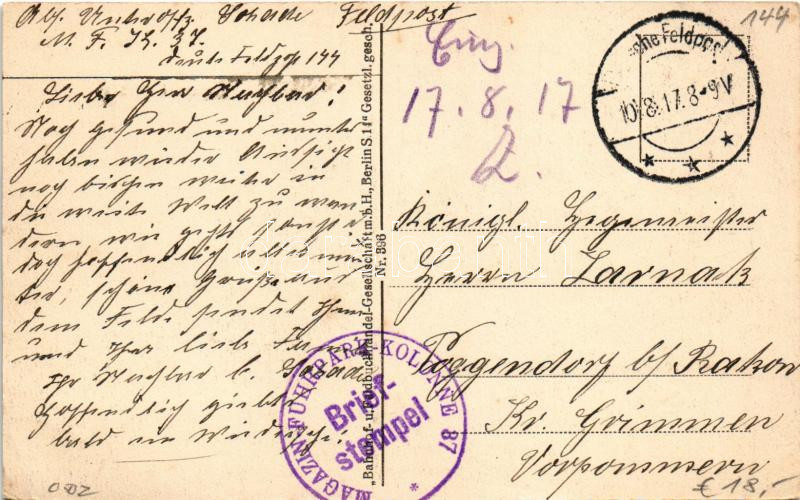 Abs. Schade Feldpost
M. F. K. 87.
Deutsche Feldpost 144
Lieber Herr Nachbar!
Noch gesund und munter
haben wieder Aussicht
noch bischen weiter in
die weite Welt zu wan
dern wie geht sonst
doch hoffendlich alle mun
ter, schöne Grüße aus
dem Felde sendet Ihnen
und Ihrer lieb.
Ihr Nachbar Schade
hoffendlich giebt
bald ein Wiedersehn.
"Bahnhof- u. Feldbuchhandel-Gesellschaft m. b. H., Berlin S. 11" Gesetzl. gesch.
Nr. 396
Eing.
17.8.17
Z.
144
Deutsche Feldpost
10.8.17.8-9V
Königl. Hegemeister
Herrn Zarnak
Poggendorf b/ Rakow
Kr. Grimmen
Vorpommern
MAGAZIN FUHRPARK KOLONNE 87
Brief-
stempel
£ 18,-